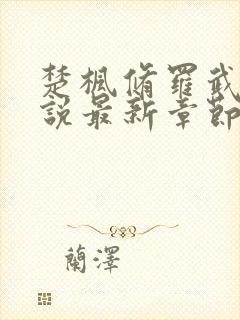 楚楓脩羅武
說最新章節
蘭澤